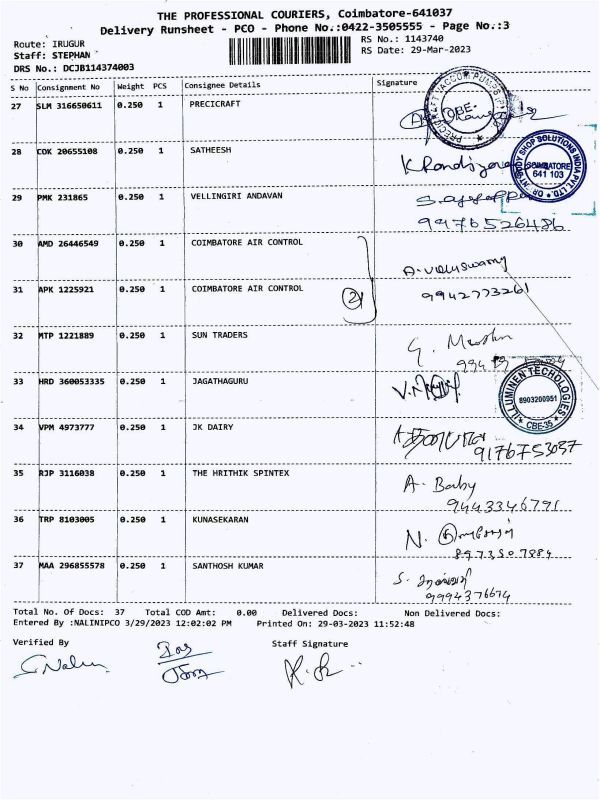 THE PROFESSIONAL COURIERS, Coimbatore-641037
Delivery Runsheet - PCO - Phone No.:0422-3505555 - Page No.:3
Route: IRUGUR
Staff: STEPHAN
DRS No.: DCJB114374003
RS No.: 1143740
RS Date: 29-Mar-2023
S No Consignment No Weight PCS Consignee Details Signature
27 SLM 316650611 0.250 1 PRECICRAFT
PRECICRAFT VACCOM PUMPS CBE-
28 COK 20655108 0.250 1 SATHEESH
BODY SHOP SOLUTIONS INDIA PVT. LTD. COIMBATORE 641 103
29 PMK 231865 0.250 1 VELLINGIRI ANDAVAN
9976526486
30 AMD 26446549 0.250 1 COIMBATORE AIR CONTROL
31 APK 1225921 0.250 1 COIMBATORE AIR CONTROL
2
9942773261
32 MTP 1221889 0.250 1 SUN TRADERS
33 HRD 360053335 0.250 1 JAGATHAGURU
ILLUMINEN TECHOLOGIES 8903200951 CBE-35
34 VPM 4973777 0.250 1 JK DAIRY
9176753037
35 RJP 3116038 0.250 1 THE HRITHIK SPINTEX
A. Baby
9443346791
36 TRP 8103005 0.250 1 KUNASEKARAN
N.
8973507884
37 MAA 296855578 0.250 1 SANTHOSH KUMAR
S.
9994376674
Total No. Of Docs: 37 Total COD Amt: 0.00 Delivered Docs: Non Delivered Docs:
Entered By :NALINIPCO 3/29/2023 12:02:02 PM Printed On: 29-03-2023 11:52:48
Verified By Staff Signature